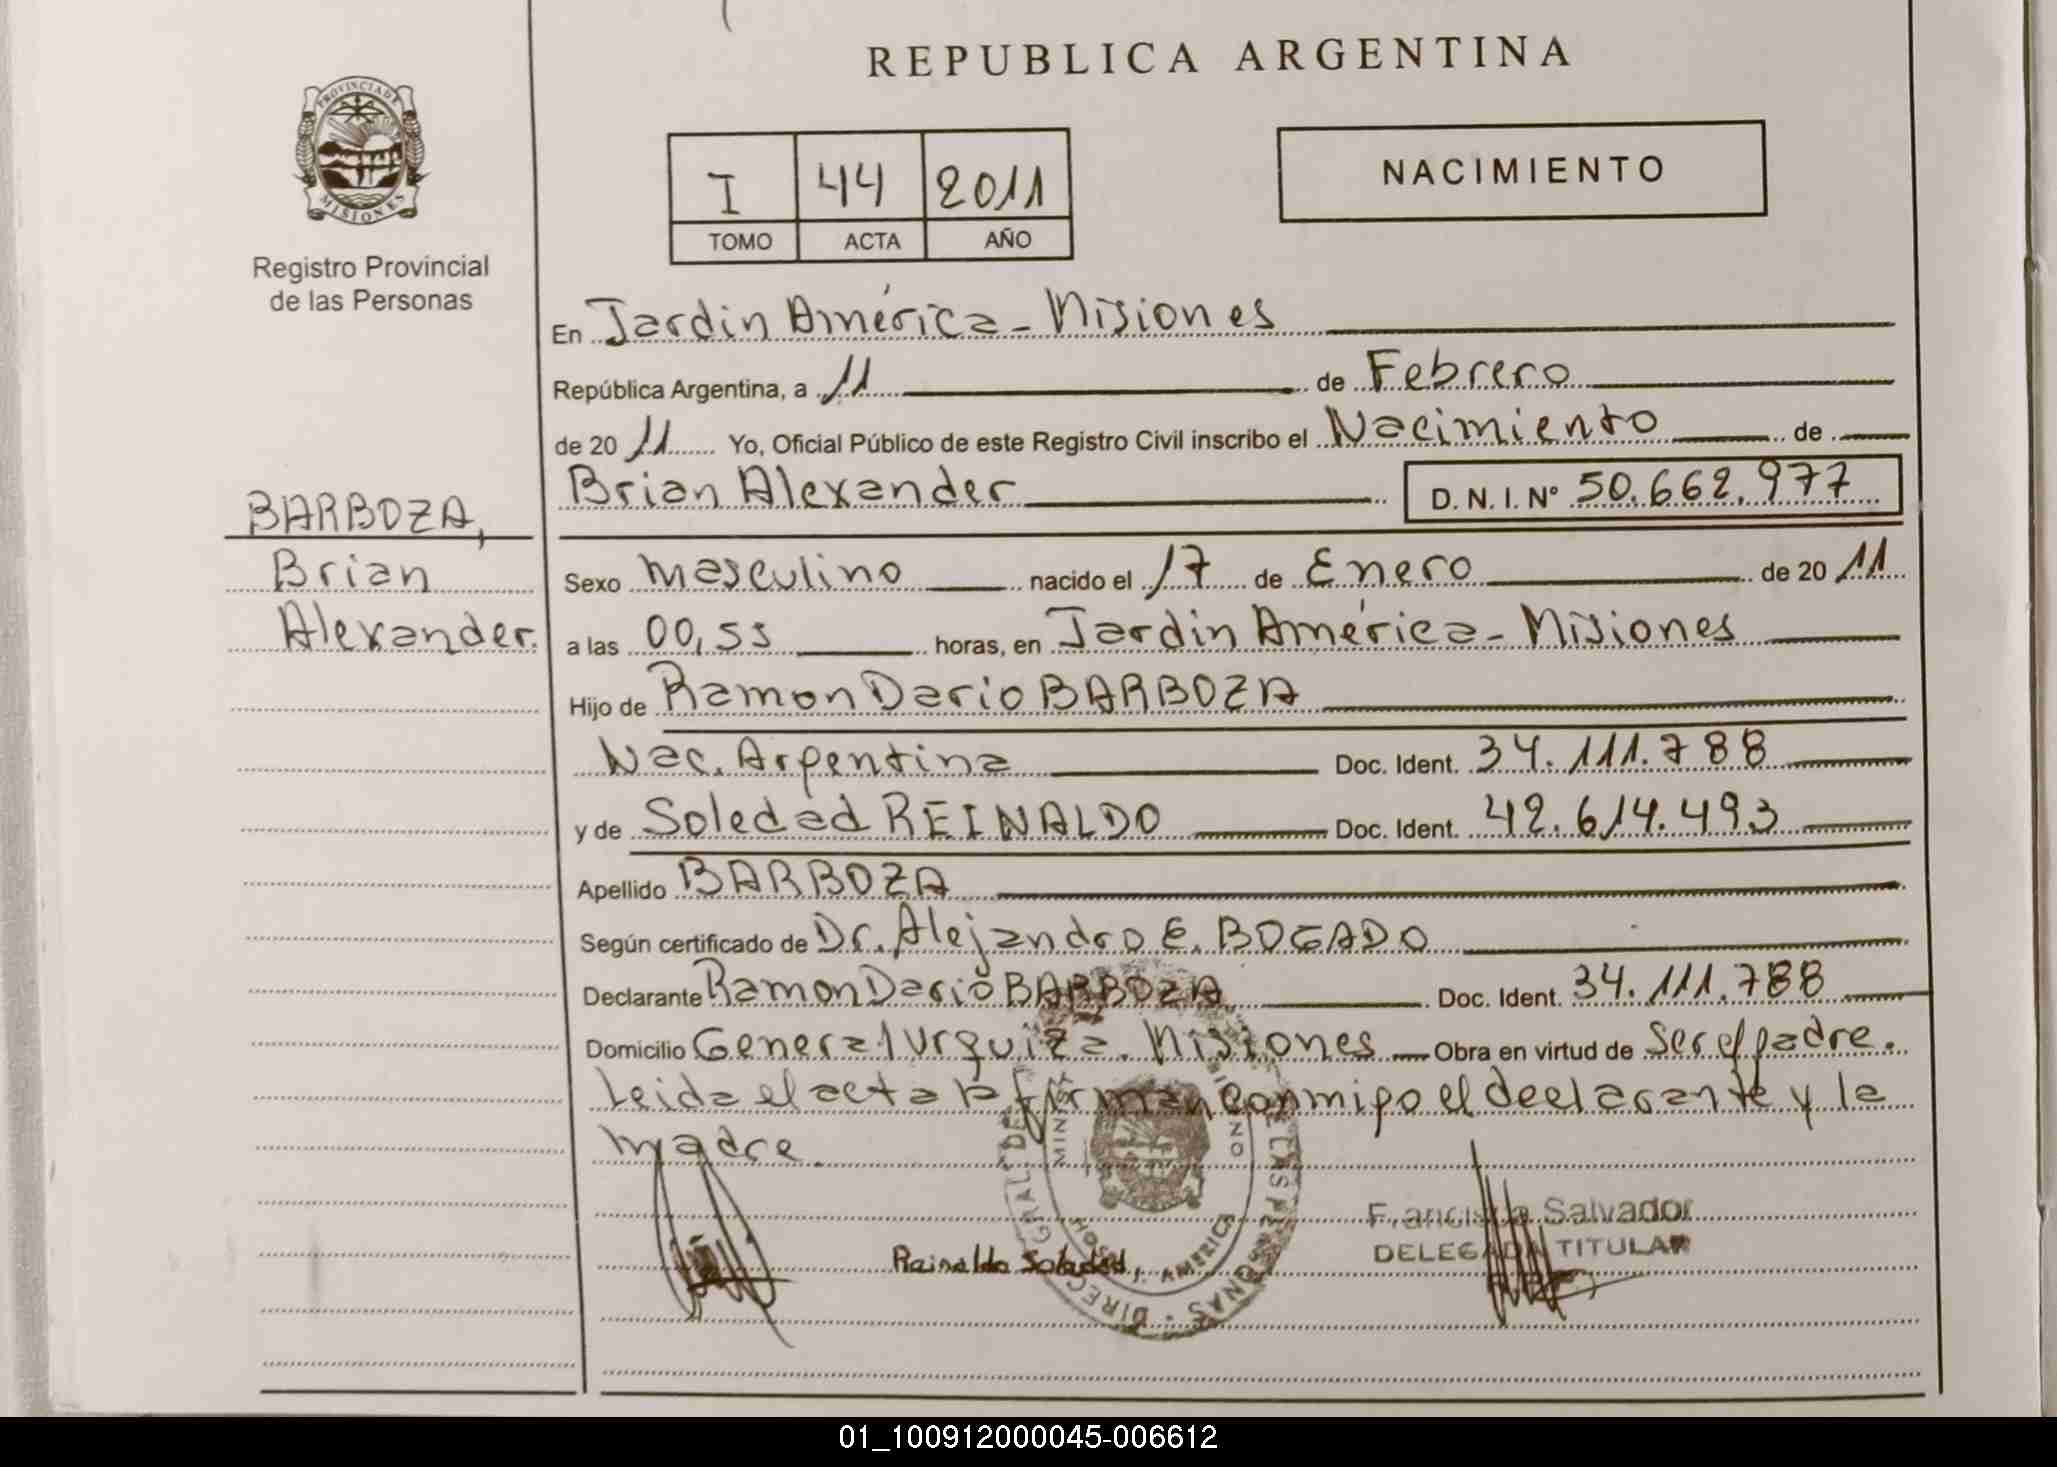 REPUBLICA ARGENTINA
PROVINCIA DE
MISIONES
Registro Provincial
de las Personas
I 44 2011
TOMO ACTA AÑO
NACIMIENTO
En Jardin América - Misiones
República Argentina, a 11 de Febrero
de 20 11 Yo, Oficial Público de este Registro Civil inscribo el Nacimiento de
Brian Alexander D.N.I.Nº 50.662.977
BARBOZA,
Brian
Alexander.
Sexo masculino nacido el 17 de Enero de 20 11
a las 00,55 horas, en Jardin América - Misiones
Hijo de Ramon Dario BARBOZA
Nac. Argentina Doc. Ident. 34.111.788
y de Soledad REINALDO Doc. Ident. 42.614.493
Apellido BARBOZA
Según certificado de Dr. Alejandro E. BOGADO
Declarante Ramon Dario BARBOZA Doc. Ident. 34.111.788
Domicilio General Urquiza. Misiones Obra en virtud de ser el padre.
Leida el acta la firman conmigo el declarante y la
madre.
Reinaldo Soledad,
Francisca Salvador
DELEGADA TITULAR
01_100912000045-006612